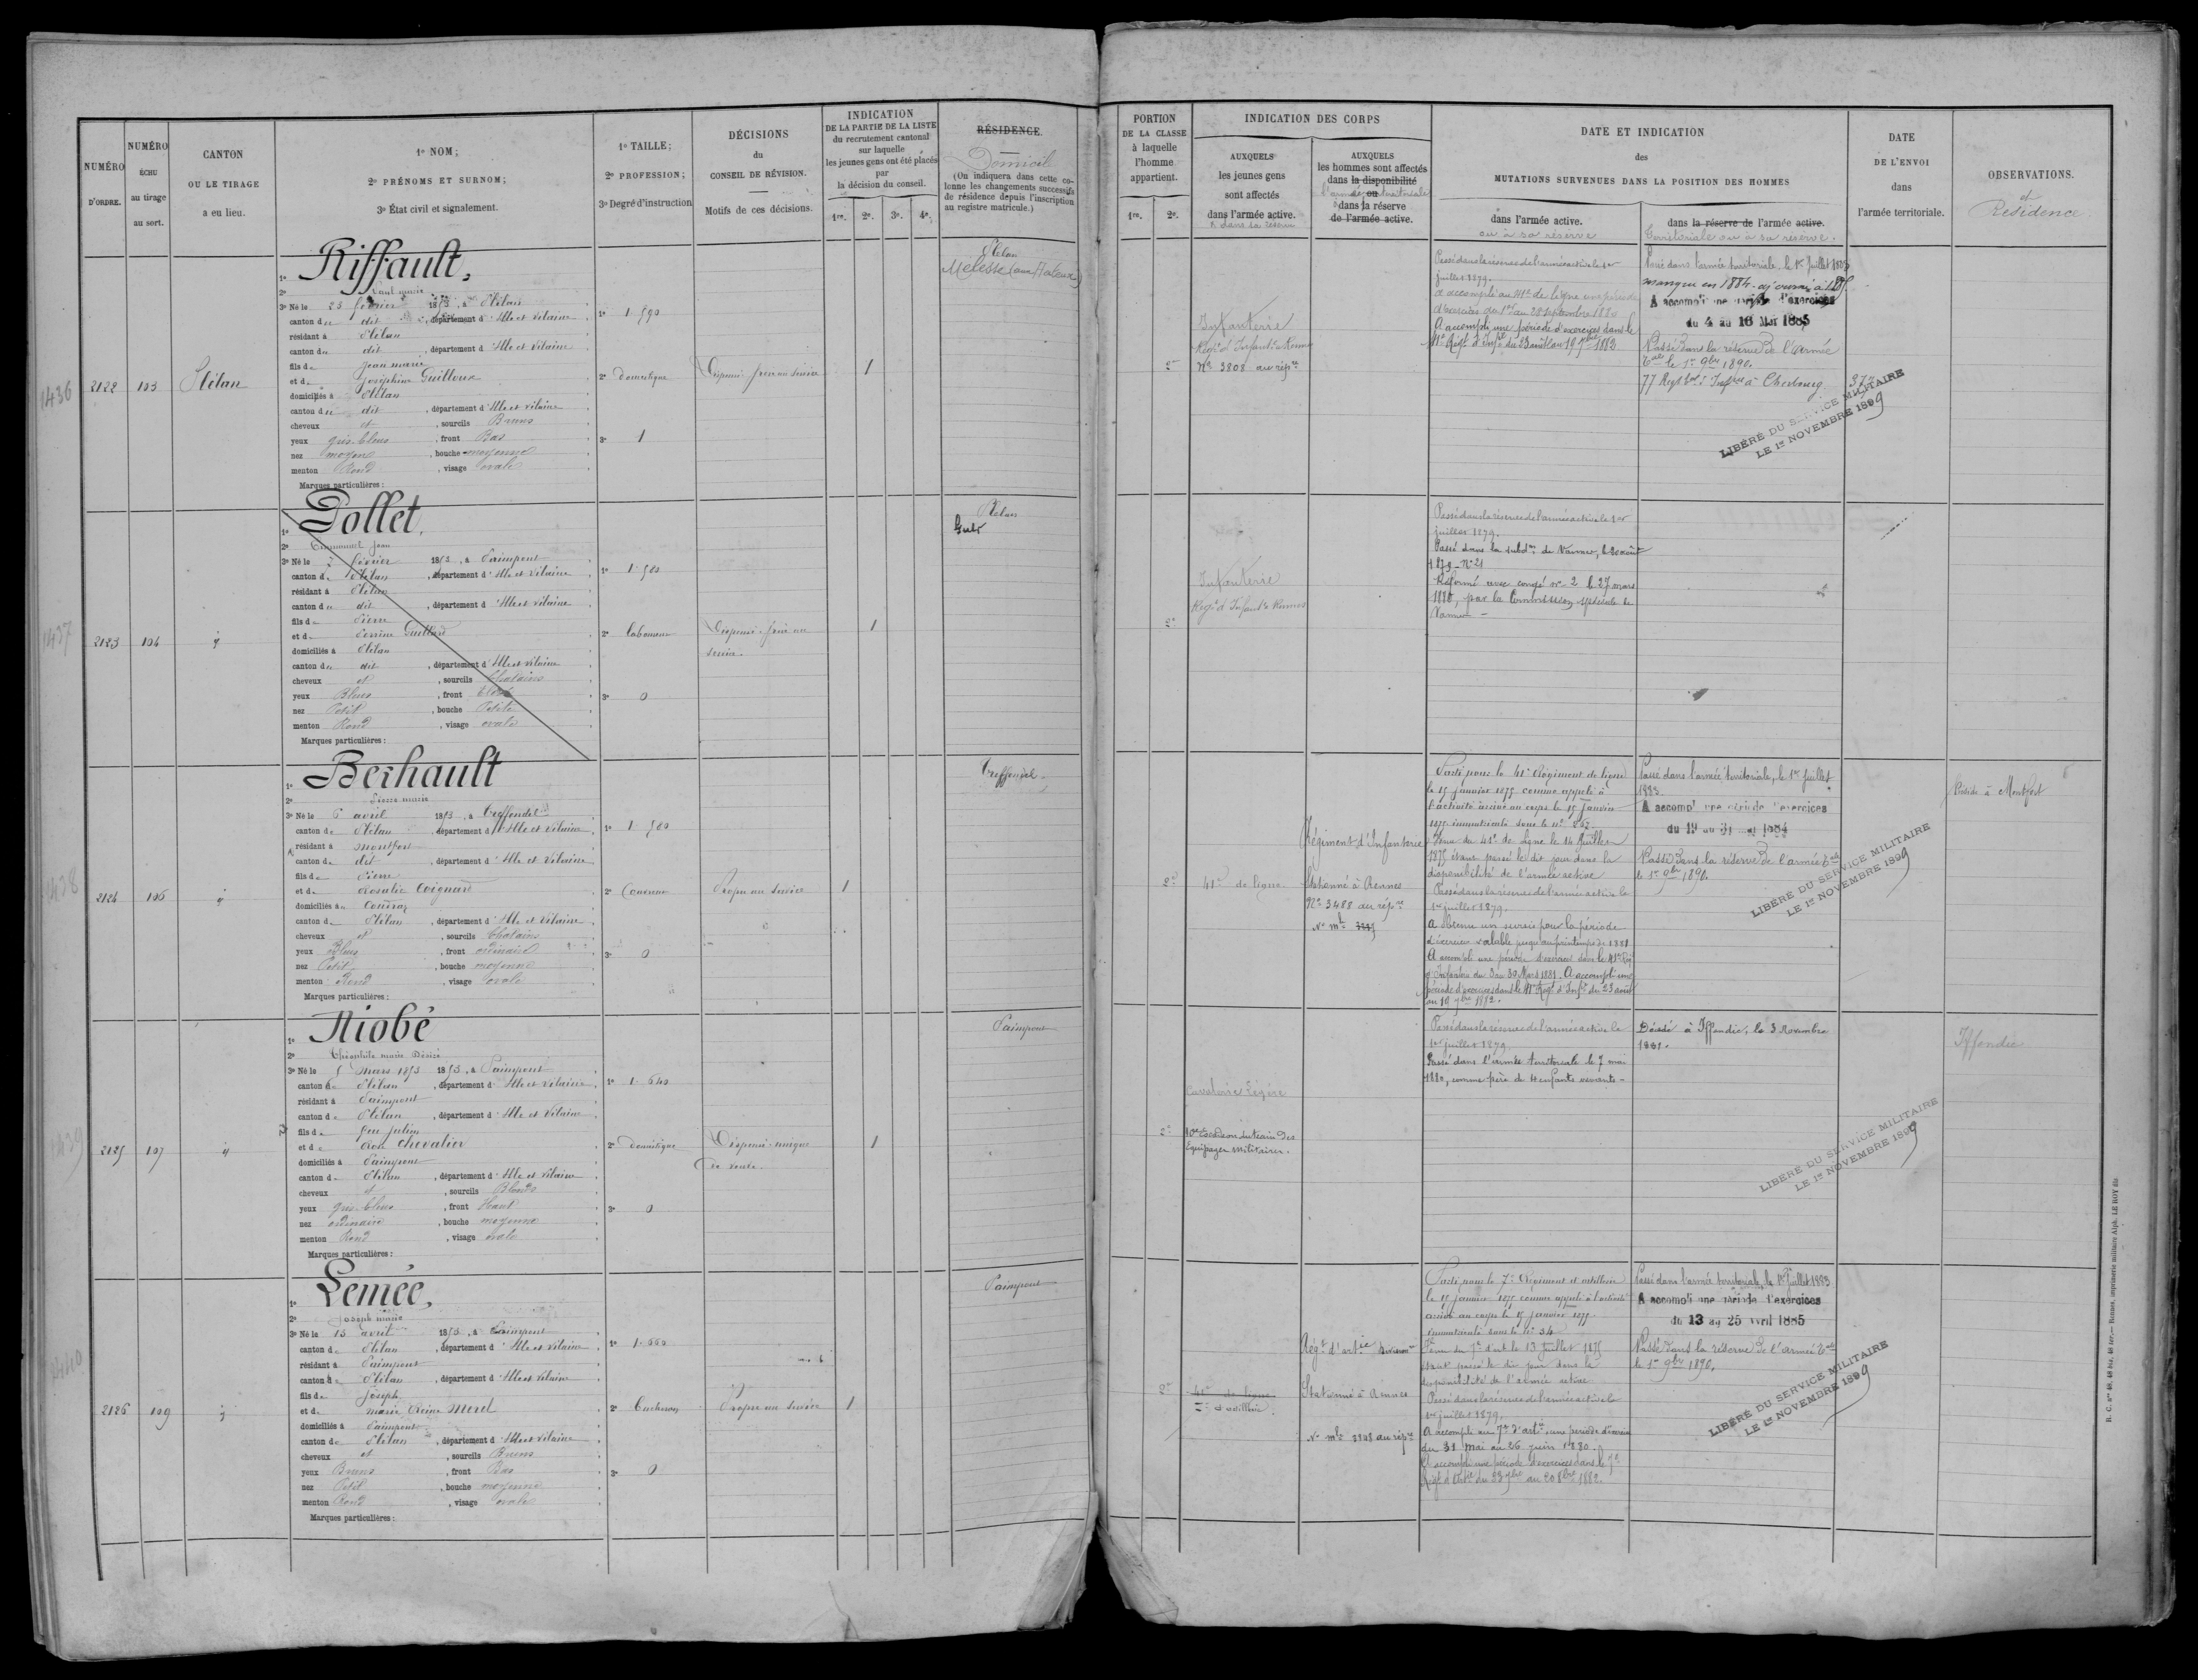 NUMÉRO
D'ORDRE.
NUMÉRO
ÉCHU
au tirage
au sort.
CANTON
OU LE TIRAGE
a eu lieu.
1º NOM;
2º PRÉNOMS ET SURNOM;
3º État civil et signalement.
1º TAILLE;
2º PROFESSION;
3º Degré d'instruction
DÉCISIONS
du
CONSEIL DE RÉVISION.
Motifs de ces décisions.
INDICATION
DE LA PARTIE DE LA LISTE
du recrutement cantonal
sur laquelle
les jeunes gens ont été placés
par
la décision du conseil.
1re. 2e. 3e. 4e.
RÉSIDENCE.
Domicil
(On indiquera dans cette co-
lonne les changements successifs
de résidence depuis l'inscription
au registre matricule.)
PORTION
DE LA CLASSE
à laquelle
l'homme
appartient.
1re. 2e.
INDICATION DES CORPS
AUXQUELS
les jeunes gens
sont affectés
dans l'armée active.
& dans sa réserve
AUXQUELS
les hommes sont affectés
dans la disponibilité
ou
l'armée territoriale
dans la réserve
de l'armée active.
DATE ET INDICATION
des
MUTATIONS SURVENUES DANS LA POSITION DES HOMMES
dans l'armée active.
ou à sa réserve
dans la réserve de l'armée active.
territoriale ou à sa réserve.
DATE
DE L'ENVOI
dans
l'armée territoriale.
OBSERVATIONS.
et
Résidence
1436
2122 103 Plélan
1º Riffault,
2º Paul marie
3º Né le 23 février 1853, à Plélan
canton du dit, département d'Ille et Vilaine
résidant à Plélan
canton du dit, département d'Ille et Vilaine
fils de Jean marie
et de Joséphine Guilloux
domiciliés à Plélan
canton du dit, département d'Ille et Vilaine
cheveux et, sourcils Bruns
yeux gris-bleus, front Bas
nez moyen, bouche moyenne
menton Rond, visage ovale
Marques particulières :
1º 1.590
2º Domestique
3º 1
Dispensé. frère au service
1
Plélan
Melesse
2e
Infanterie
Régt d'Infantie Rennes
Nº 3808 au répre
Passé dans la réserve de l'armée active le 1er
juillet 1879.
a accompli au 41e de ligne une période
d'exercices du 1er au 28 septembre 1880
A accompli une période d'exercices dans le
41e Régt d'Infie du 23 août au 19 7bre 1883
Passé dans l'armée territoriale, le 1er Juillet 1883
manqué en 1884. ajourné à 1885
A accompli une période d'exercices
du 4 au 16 Mai 1885
Passé dans la réserve de l'armée
tale le 1er 9bre 1890.
77 Regt tal d'Infrie à Cherbourg.
LIBÉRÉ DU SERVICE MILITAIRE
LE 1er NOVEMBRE 1899
1437
2123 104 id
1º Pollet,
2º Emmanuel Jean
3º Né le 2 février 1853, à Paimpont
canton de Plélan, département d'Ille et Vilaine
résidant à Plélan
canton du dit, département d'Ille et Vilaine
fils de Pierre
et de Perrine Guillard
domiciliés à Plélan
canton du dit, département d'Ille et Vilaine
cheveux et, sourcils Chatains
yeux Bleus, front Elevé
nez Petit, bouche Petite
menton Rond, visage ovale
Marques particulières :
1º 1.580
2º laboureur
3º 0
Dispensé. frère au
service.
1
Plélan
2e
Infanterie
Régt d'Infantie Rennes
Passé dans la réserve de l'armée active le 1er
juillet 1879.
Passé dans la subdon de Vannes, le 30 août
1879 - Nº 21
Réformé avec congé nº 2 le 27 mars
1880, par la Commission spéciale de
Vannes -
1438
2124 106 id
1º Berhault
2º Pierre marie
3º Né le 6 avril 1853, à Treffendel
canton de Plélan, département d'Ille et Vilaine
résidant à montfort
canton du dit, département d'Ille et Vilaine
fils de Pierre
et de Rosalie Coignard
canton de Plélan, département d'Ille et Vilaine
cheveux et, sourcils Chatains
yeux Bleus, front ordinaire
nez Petit, bouche moyenne
menton Rond, visage ovale
Marques particulières :
1º 1.580
2º Couvreur
3º 0
Propre au service
1
Treffendel.
2e
41e de ligne
Régiment d'Infanterie
Stationné à Rennes
Nº 3488 au répre
Parti pour le 41e Régiment de ligne
le 15 janvier 1875 comme appelé à
l'activité arrivé au corps le 15 janvier
1875 immatriculé sous le nº 262.
Venu du 41e de ligne le 14 Juillet
1875 étant passé le dit jour dans la
disponibilité de l'armée active
Passé dans la réserve de l'armée active le
1er juillet 1879.
a obtenu un sursis pour la période
d'exercices valable jusqu'au printemps de 1881
A accompli une période d'exercices dans le 41e Rég
d'Infanterie du 3 au 30 Mars 1881. A accompli une
période d'exercices dans le 41e Régt d'Infie du 23 août
au 19 7bre 1882.
Passé dans l'armée territoriale, le 1er Juillet
1883.
A accompli une période d'exercices
du 19 au 31 mai 1884
Passé dans la réserve de l'armée tale
le 1er 9bre 1890.
LIBÉRÉ DU SERVICE MILITAIRE
LE 1er NOVEMBRE 1899
Réside à Montfort
1439
2125 107 id
1º Niobé
2º Théophile marie Désiré
3º Né le 5 mars 1853 1853, à Paimpont
canton de Plélan, département d'Ille et Vilaine
résidant à Paimpont
canton de Plélan, département d'Ille et Vilaine
fils de feu Julien
et de chevalier
domiciliés à Paimpont
canton de Plélan, département d'Ille et Vilaine
cheveux et, sourcils Blonds
yeux gris-bleus, front Haut
nez ordinaire, bouche moyenne
menton Rond, visage ovale
Marques particulières :
1º 1.640
2º Domestique
3º 0
Dispensé. unique
de veuve.
1
Paimpont
2e
Cavalerie légère
10e Escadron du train des
Equipages militaires.
Passé dans la réserve de l'armée active le
1er juillet 1879.
Passé dans l'armée territoriale le 7 mai
1880, comme père de 4 enfants vivants -
Décédé à Iffendic, le 3 Novembre
1881.
LIBÉRÉ DU SERVICE MILITAIRE
LE 1er NOVEMBRE 1899
Iffendic
1440
2126 109 id
1º Lemée,
2º Joseph marie
3º Né le 13 avril 1853, à Paimpont
canton de Plélan, département d'Ille et Vilaine
résidant à Paimpont
canton de Plélan, département d'Ille et Vilaine
fils de Joseph
et de marie Reine Morel
domiciliés à Paimpont
canton de Plélan, département d'Ille et Vilaine
cheveux et, sourcils Bruns
yeux Bruns, front Bas
nez Petit, bouche moyenne
menton Rond, visage ovale
Marques particulières :
1º 1.660
2º Bucheron
3º 0
Propre au service
1
Paimpont
2e
41e de ligne
7e d'artillerie.
Régt d'artie
Stationné à Rennes
Parti pour le 7e Régiment d'artillerie
le 15 janvier 1875 comme appelé à l'activité
arrivé au corps le 15 janvier 1875
immatriculé sous le nº 34
Venu du 7e d'art le 13 Juillet 1875
étant passé le dit jour dans la
disponibilité de l'armée active
Passé dans la réserve de l'armée active le
1er juillet 1879.
A accompli au 7e d'artie une période d'exercices
du 31 mai au 26 juin 1880.
A accompli une période d'exercices dans le 7e
Régt d'Artie du 23 7bre au 20 8bre 1882.
Passé dans l'armée territoriale, le 1er Juillet 1883
A accompli une période d'exercices
du 13 au 25 Avril 1885
Passé dans la réserve de l'armée tale
le 1er 9bre 1890.
LIBÉRÉ DU SERVICE MILITAIRE
LE 1er NOVEMBRE 1899
R. C. nos 48, 48 bis, 48 ter. — Rennes, imprimerie militaire Alph. LE ROY fils